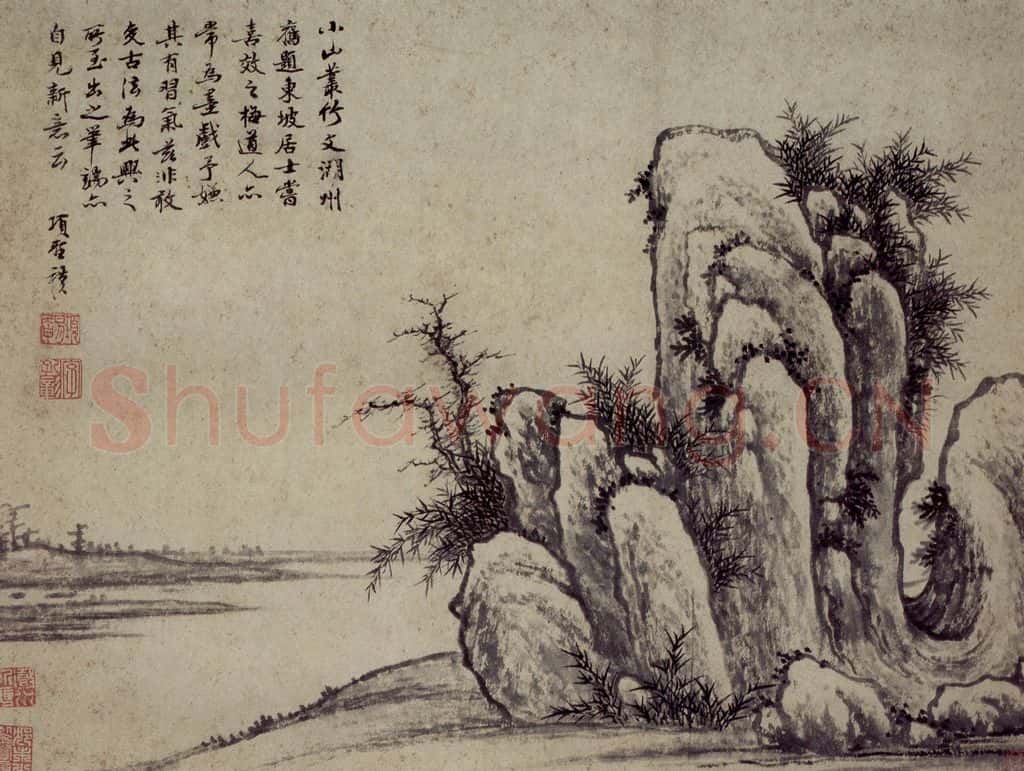 小山叢竹文湖州
舊題東坡居士嘗
喜效之梅道人亦
常為墨戲予
其有習氣茲非敢
古法為此興之
所至出之筆端亦
自見新意云
項聖謨
Shufawang.CN